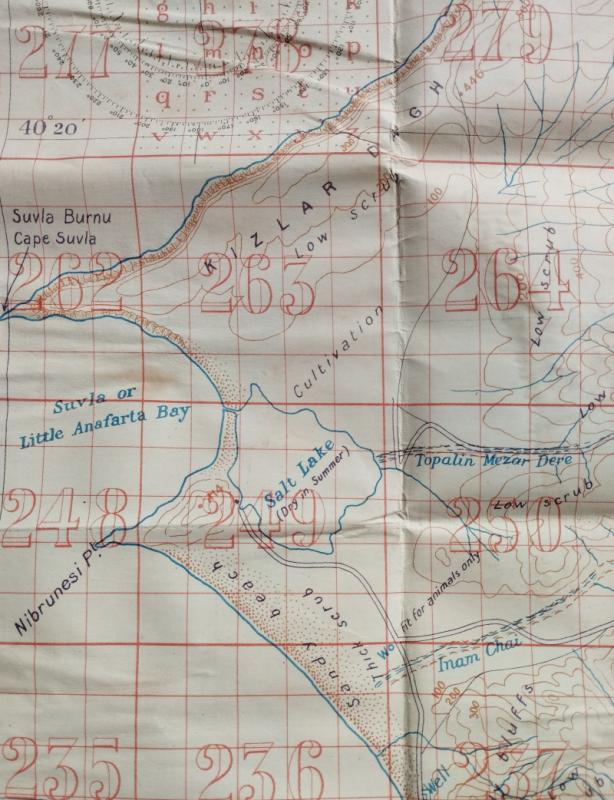 g h i k
277 278 279
m n o p
446
q r s
40°20'
v w x
KIZLAR DAGH
300
Low scrub
100
Suvla Burnu
Cape Suvla
262 263 264
Low scrub
Cultivation
Suvla or
Little Anafarta Bay
Low
Topalin Mezar Dere
Salt Lake
(Dry in Summer)
248 249 250
Low scrub
Nibrunesi Pt.
Sandy beach
Thick scrub
Fit for animals only
Inam Chai
100
200
300
bluffs
235 236 237
Well